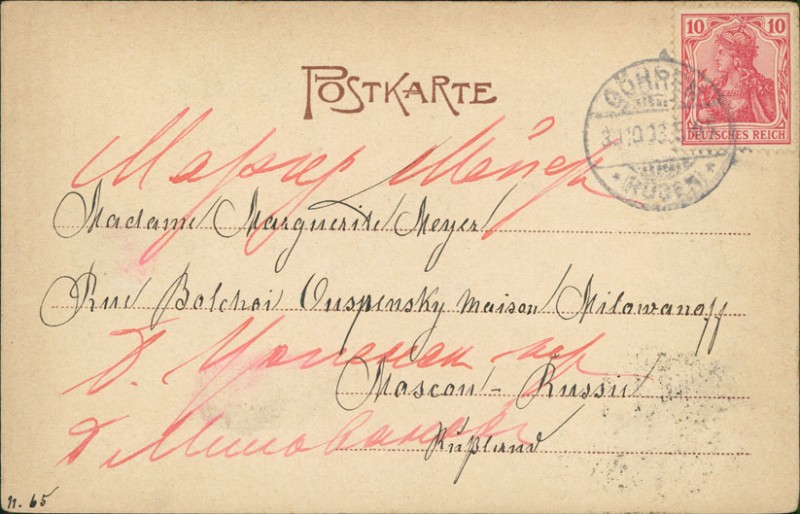 POSTKARTE
10 10
DEUTSCHES REICH
GÖHREN
* (RÜGEN) *
Мейер
Madame Marguerite Meyer
Rue Bolchoi Ouspensky maison Milowanoff
Б. Успенск. пер
Moscou - Russie
д Милованова
Rußland
n. 65